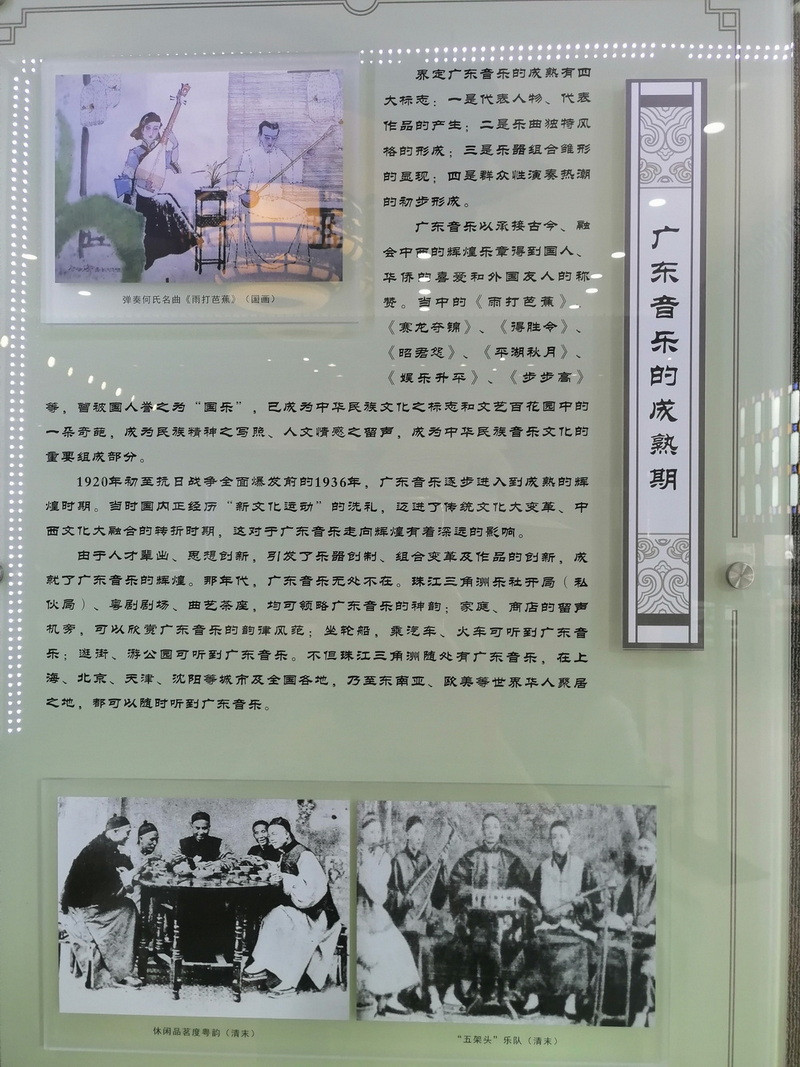 广东音乐的成熟期
界定广东音乐的成熟有四
大标志：一是代表人物、代表
作品的产生；二是乐曲独特风
格的形成；三是乐器组合雏形
的显现；四是群众性演奏热潮
的初步形成。
广东音乐以承接古今、融
会中西的辉煌乐章得到国人、
华侨的喜爱和外国友人的称
赞。当中的《雨打芭蕉》、
《赛龙夺锦》、《得胜令》、
《昭君怨》、《平湖秋月》、
《娱乐升平》、《步步高》
等，曾被国人誉之为“国乐”，已成为中华民族文化之标志和文艺百花园中的
一朵奇葩，成为民族精神之写照、人文情感之留声，成为中华民族音乐文化的
重要组成部分。
1920年初至抗日战争全面爆发前的1936年，广东音乐逐步进入到成熟的辉
煌时期。当时国内正经历“新文化运动”的洗礼，迈进了传统文化大变革、中
西文化大融合的转折时期，这对于广东音乐走向辉煌有着深远的影响。
由于人才辈出、思想创新，引发了乐器创制、组合变革及作品的创新，成
就了广东音乐的辉煌。那年代，广东音乐无处不在。珠江三角洲乐社开局（私
伙局）、粤剧剧场、曲艺茶座，均可领略广东音乐的神韵；家庭、商店的留声
机旁，可以欣赏广东音乐的韵律风范；坐轮船，乘汽车、火车可听到广东音
乐；逛街、游公园可听到广东音乐。不但珠江三角洲随处有广东音乐，在上
海、北京、天津、沈阳等城市及全国各地，乃至东南亚、欧美等世界华人聚居
之地，都可以随时听到广东音乐。
弹奏何氏名曲《雨打芭蕉》（国画）
休闲品茗度粤韵（清末）
“五架头”乐队（清末）